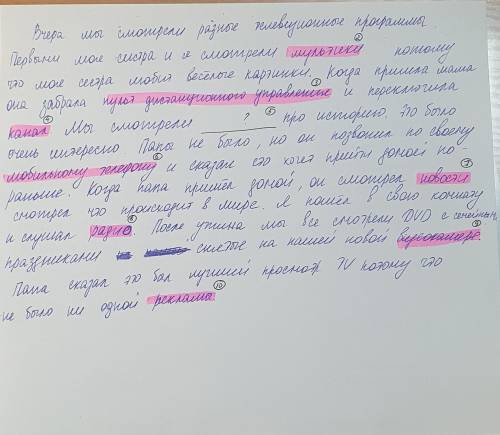 Вчера мы смотрели разные телевизионные программы.
Первыми мое сестра и я смотрели мультики ② потому
что мое сестра любит весёлые картинки. Когда пришла мама
она забрала пульт дистанционного управление ③ и переключила
канал ④ Мы смотрели ___?___ ⑤ про историю. Это было
очень интересно Папы не было, но он позвонил по своему
мобильному телефону ⑥ и сказал что хочет прийти домой по-
раньше. Когда папа пришёл домой, он смотрел новости ⑦
смотрел что происходит в мире. Я пошёл в свою комнату
и слушал радио ⑧. После ужина мы все смотрели DVD с семейным
праздниками снятые на нашей новой видеокамере ⑨.
Папа сказал это был лучший просмотр TV потому что
не было ни одной рекламы ⑩